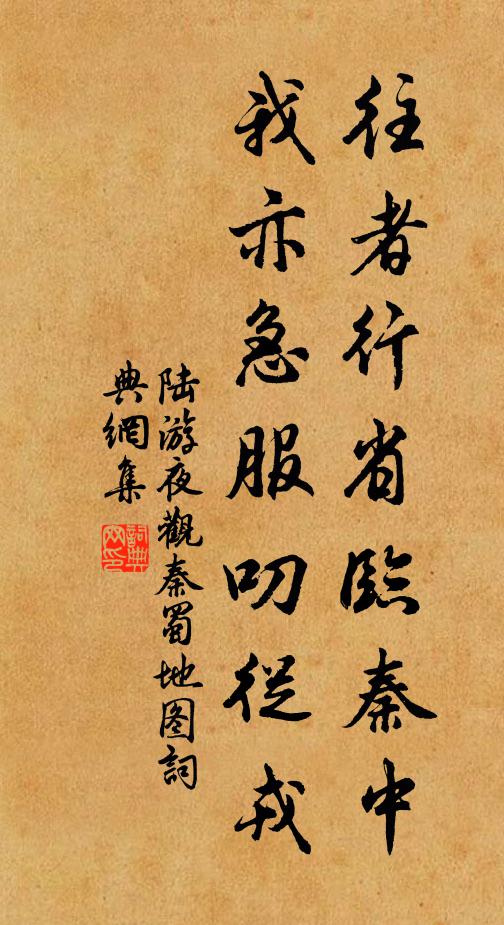 往者行省臨秦中
我亦急服叨從戎
陆游夜觀秦蜀地图詞
典網集
詞典
网印